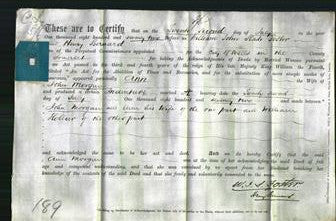 These are to Certify that on the second day of July in the year
One thousand eight hundred and seventy two before us William John Slade Foster
and Henry Bernard
of the Perpetual Commissioners appointed for the City of Wells in the County
Somerset for taking the Acknowledgments of Deeds by Married Women pursuant
to an Act passed in the third and fourth years of the reign of His late Majesty King William the Fourth,
intituled "An Act for the Abolition of Fines and Recoveries, and for the substitution of more simple modes of
Assurance," appeared personally Ann the Wife of
John Morgan
and produced a certain Indenture marked bearing date the
day of July One thousand eight hundred and seventy two and made between
John Morgan and Ann his Wife of the one part and William
of the other part
and acknowledged the same to be her act and deed. And we do hereby Certify that the said
Ann Morgan was at the time of her acknowledging the said Deed of full
age and competent understanding, and that she was examined by us apart from her Husband touching her
knowledge of the contents of the said Deed and that she freely and voluntarily consented to the same
W. J. S. Foster
189